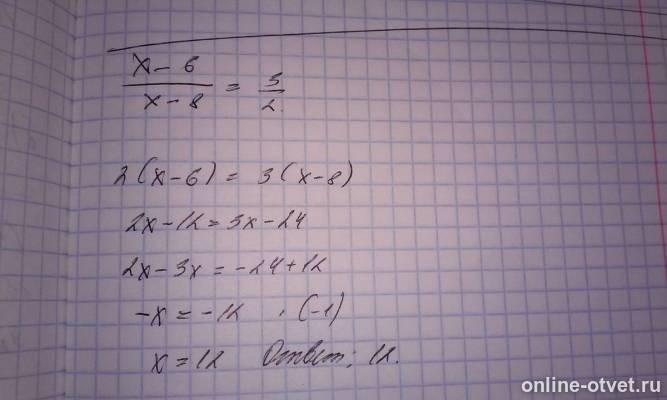 x - 6 / x - 8 = 3 / 2.
2(x-6) = 3(x-8)
2x-12=3x-24
2x-3x=-24+12
-x=-12 · (-1)
x=12 Ответ: 12.
online-otvet.ru